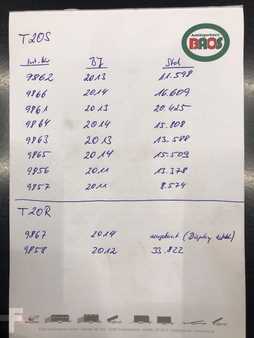 BAOS
T20S
Int. Nr BJ Std
9862 2013 11.598
9866 2014 16.609
9861 2013 20.425
9864 2014 15.108
9863 2013 13.588
9865 2014 15.509
9856 2011 13.378
9857 2011 8.574
T20R
9867 2014 (Display
9858 2012 33.822